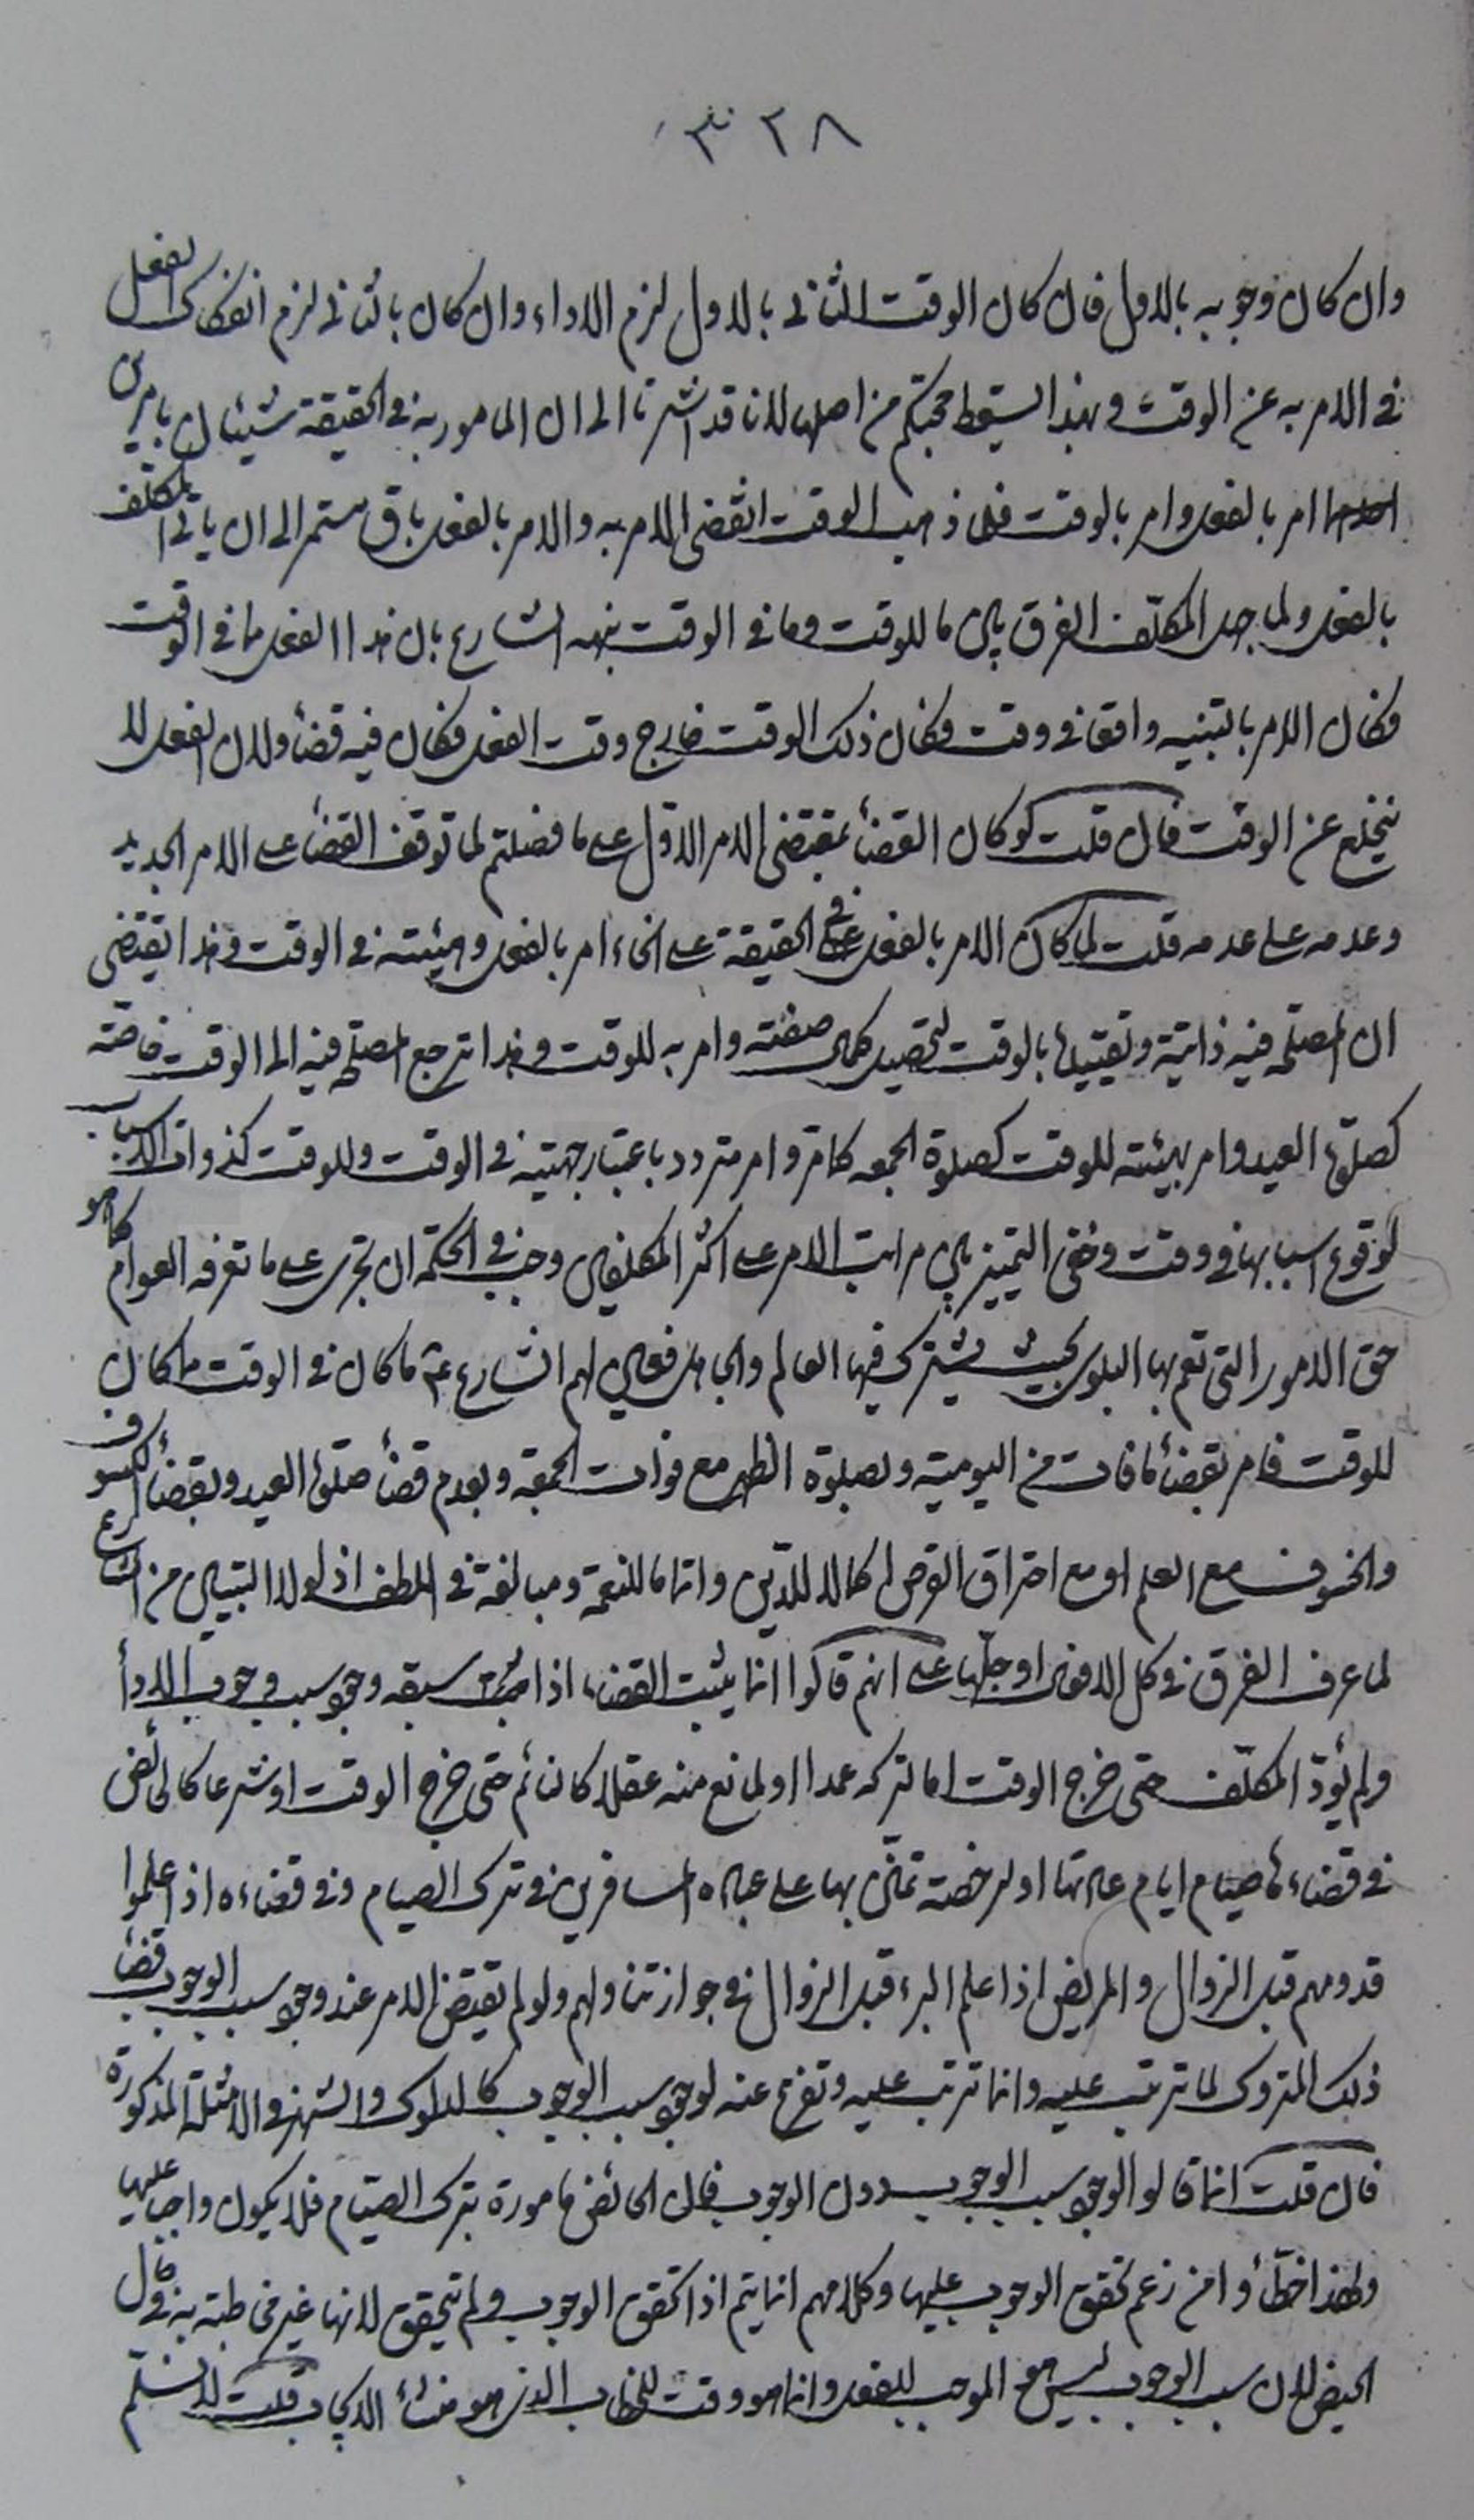 ٣٢٨
وان كان وجوبه بالاول فان كان الوقت الثاني بالاول لزم الاداء وان كان بالثاني لزم انفكاك الفعل
في الامر به عن الوقت وبهذا يسقط حجتكم من اصلها لانا قد اشرنا الى ان المامور به في الحقيقة شيئان بامرين
امر بالفعل وامر بالوقت فلما ذهب الوقت انقضى الامر به والامر بالفعل باق مستمر الى ان ياتي المكلف
بالفعل ولما جهل المكلّف الفرق بين ما للوقت وما في الوقت نبهه الشارع بان هذا الفعل مما في الوقت
فكان الامر بالتنبيه واقعا في وقت وكان ذلك الوقت خارج وقت الفعل فكان فيه قضاء ولان الفعل لا
ينخلع عن الوقت فان قلت لو كان القضاء بمقتضى الامر الاوّل على ما فصلتم لما توقف القضاء على الامر الجديد
وعدمه على عدمه قلت لما كان الامر بالفعل في الحقيقة على انحاء امر بالفعل وهيئته في الوقت وهذا يقتضى
ان المصلحة فيه ذاتية وتقييدها بالوقت لتحصيل كمال صفته وامر به للوقت وهذا ترجع المصلحة فيه الى الوقت خاصّة
كصلوة العيد وامر بهيئته للوقت كصلوة الجمعه كما مرّ وامر متردد باعتبار جهتيه في الوقت وللوقت كذوات الاسباب
لوقوع اسبابها في وقت وخفى التمييز بين مراتب الامر على اكثر المكلفين وجب في الحكمة ان تجرى على ما تعرفه العوام كما هو
حق الامور التي تعم بها البلوى بحيث يشترك فيها العالم والجاهل فعين لهم الشارع ع ما كان في الوقت مما كان
للوقت فامر بقضاء ما فات من اليومية وبصلوة الظهر مع فوات الجمعة وبعدم قضاء صلوة العيد وبقضاء الكسوف
والخسوف مع العلم او مع احتراق القرص اكمالا للدّين واتماما للنعمة ومبالغة في اللطف اذ لولا التبيين من الشارع
لما عرف الفرق في كل الافعال او جلّها على انهم قالوا انما يثبت القضاء اذا سبقه وجود سبب وجوب الاداء
ولم يؤدّ المكلّف حتى خرج الوقت اما لتركه عمدا او لمانع منه عقلا كالنائم حتى خرج الوقت او شرعا كالحائض
في قضاءها صيام ايام عادتها او لرخصة تمنّن بها على عباده المسافرين في ترك الصيام وفي قضاءه اذ اعلموا
قدومهم قبل الزوال والمريض اذا علم البرء قبل الزوال في جواز تناولهم ولو لم يقتض الامر عند وجود سبب الوجوب قضاء
ذلك المتروك لما ترتب عليه وانما ترتب عليه وتفرع عنه لوجود سبب الوجوب كالدلوك والشهر في الامثلة المذكورة
فان قلت انما قالوا لوجود سبب الوجوب دون الوجوب فان الحائض مامورة بترك الصيام فلا يكون واجبا عليها
ولهذا خطّأوا من زعم تحقق الوجوب عليها وكلامهم انما يتم اذا تحقق الوجوب ولم يتحقق لانها غير مخاطبة به في حال
الحيض لان سبب الوجوب ليس هو الموجب للفعل وانما هو وقت للخطاب الذي هو منشاء الايجاب قلت لا نسلّم